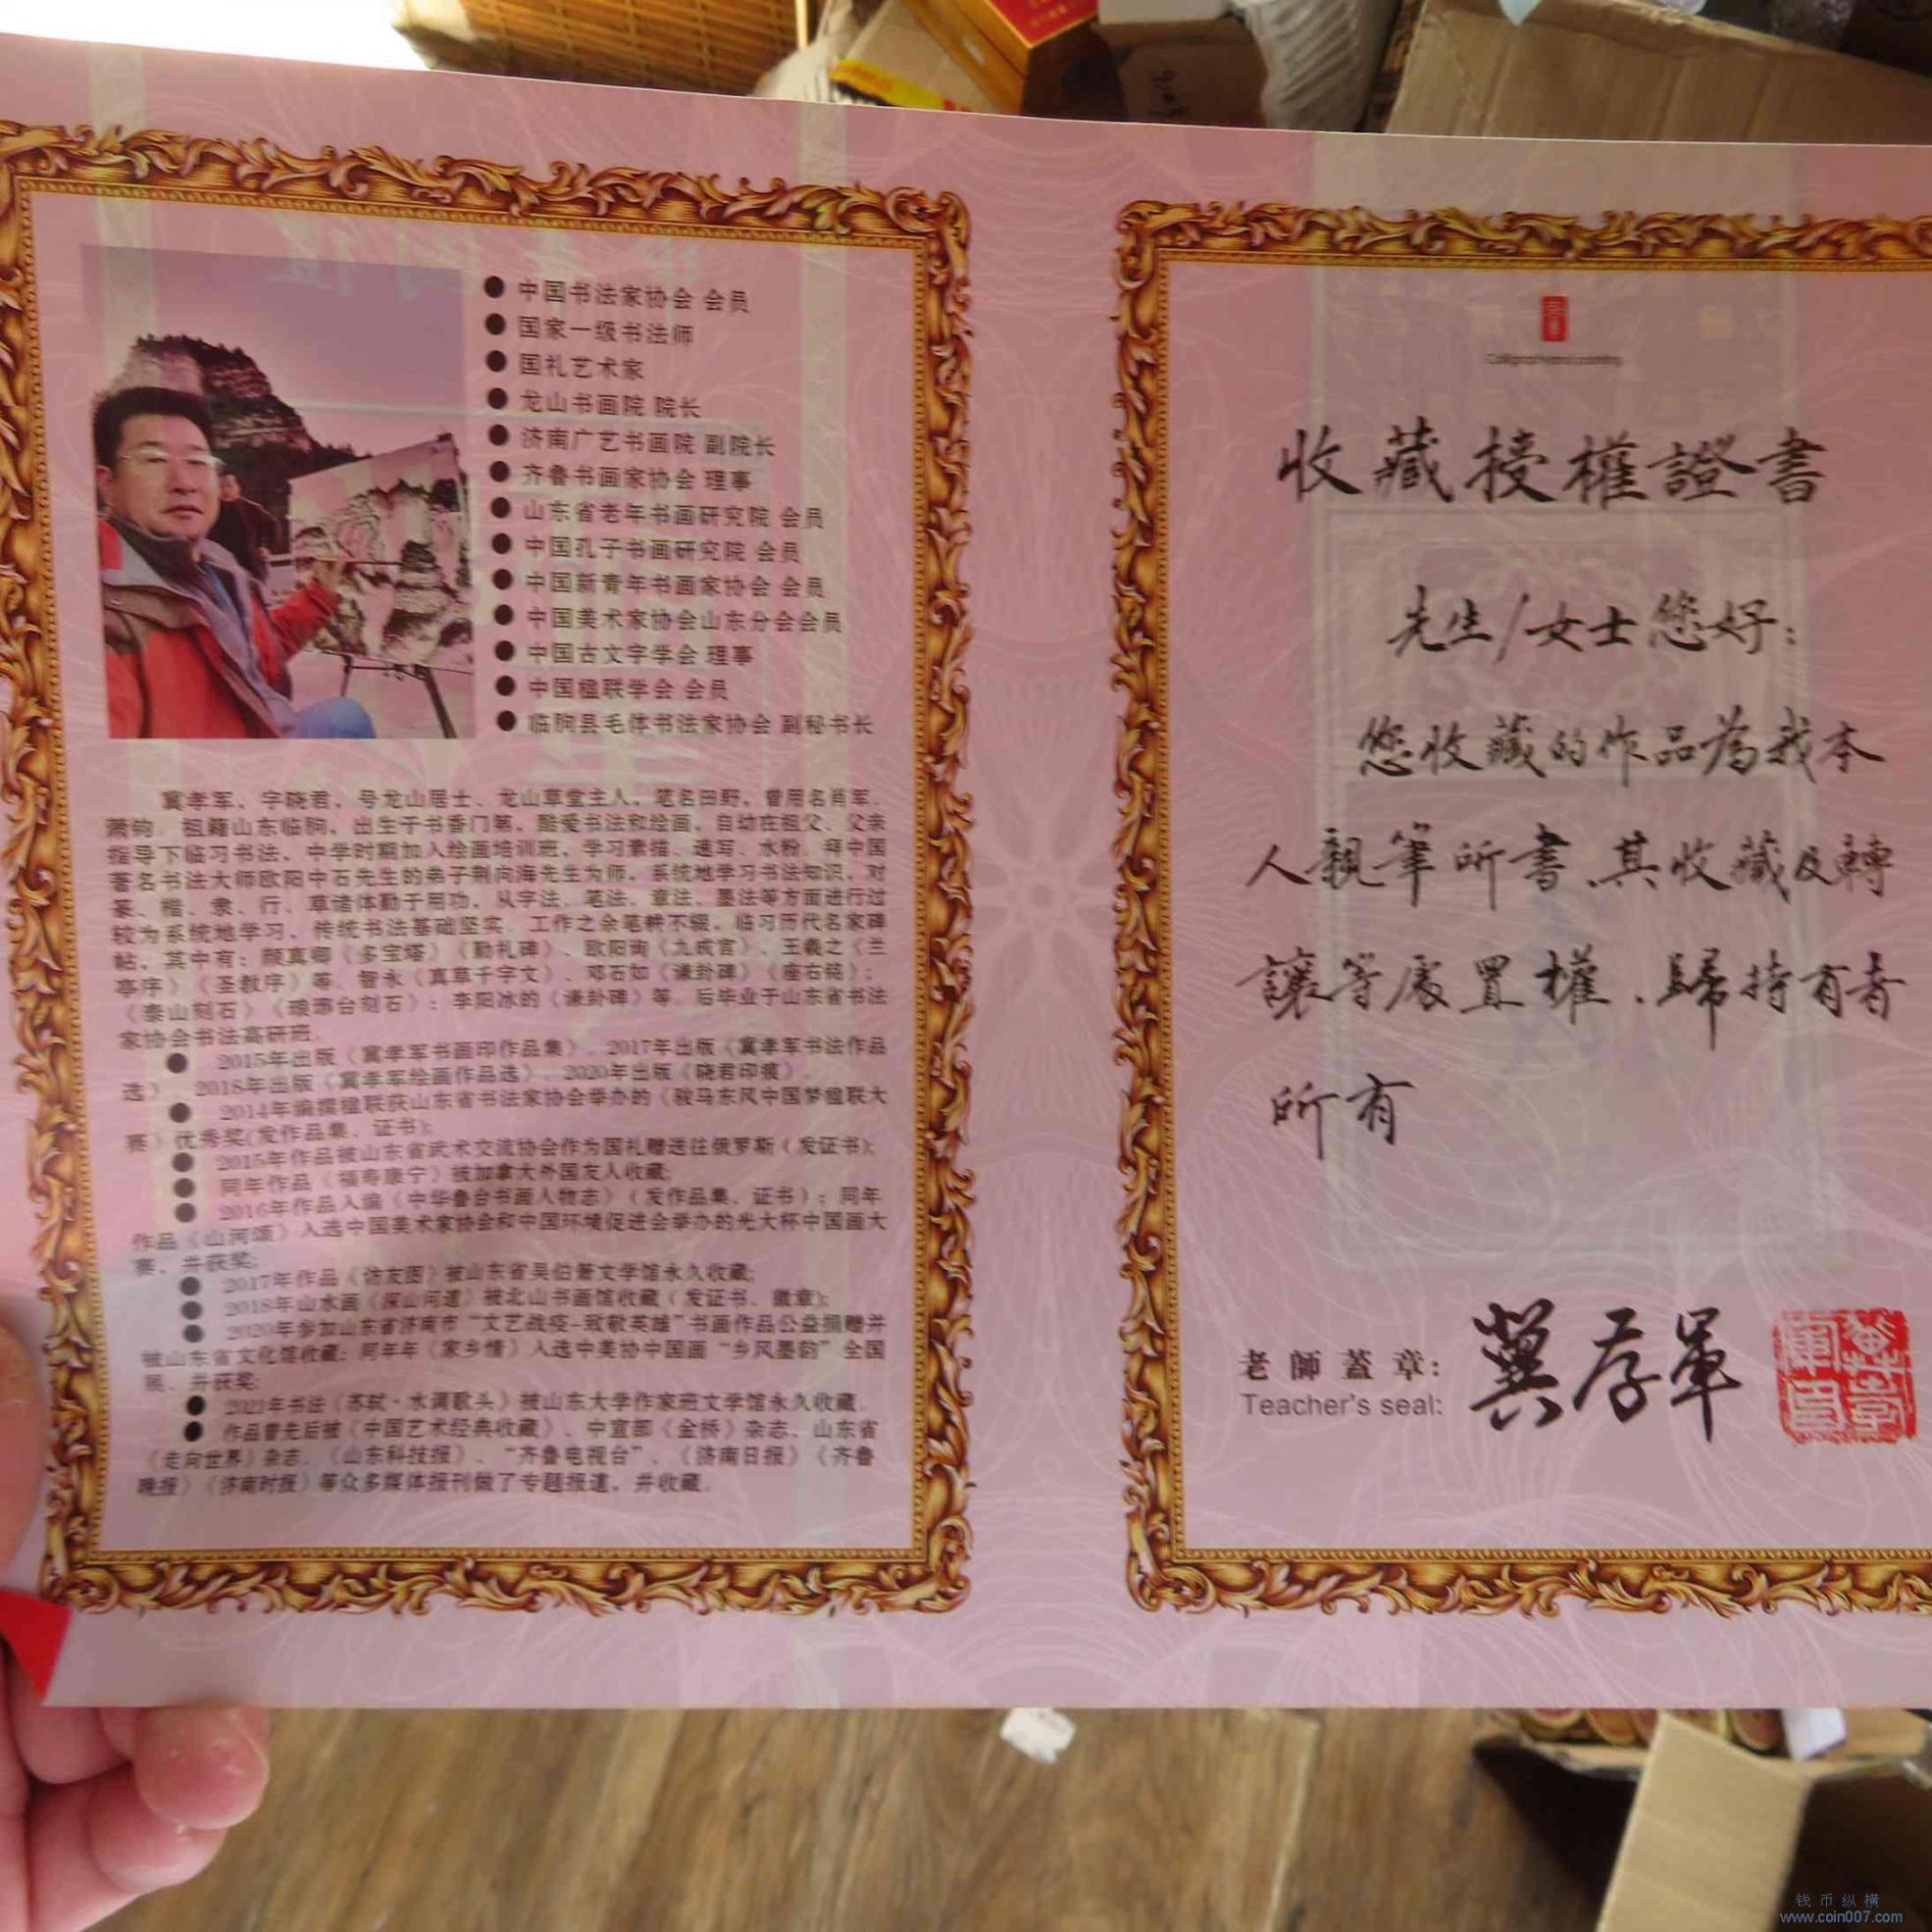 中国书法家协会 会员
国家一级书法师
国礼艺术家
龙山书画院 院长
济南广艺书画院 副院长
齐鲁书画家协会 理事
山东省老年书画研究院 会员
中国孔子书画研究院 会员
中国新青年书画家协会 会员
中国美术家协会山东分会会员
中国古文字学会 理事
中国楹联学会 会员
临朐县毛体书法家协会 副秘书长
冀孝军，字晓君，号龙山居士、龙山草堂主人，笔名田野，曾用名肖军、
萧钧。祖籍山东临朐，出生于书香门第，酷爱书法和绘画，自幼在祖父、父亲
指导下临习书法，中学时期加入绘画培训班，学习素描、速写、水粉，拜中国
著名书法大师欧阳中石先生的弟子荆向海先生为师，系统地学习书法知识，对
篆、楷、隶、行、草诸体勤于用功，从字法、笔法、章法、墨法等方面进行过
较为系统地学习，传统书法基础坚实。工作之余笔耕不辍，临习历代名家碑
帖，其中有：颜真卿《多宝塔》《勤礼碑》、欧阳询《九成宫》、王羲之《兰
亭序》《圣教序》等，智永《真草千字文》、邓石如《谦卦碑》《座右铭》；
《泰山刻石》《琅琊台刻石》；李阳冰的《谦卦碑》等。后毕业于山东省书法
家协会书法高研班。
2015年出版《冀孝军书画印作品集》、2017年出版《冀孝军书法作品
选》、2018年出版《冀孝军绘画作品选》、2020年出版《晓君印痕》。
2014年编撰楹联获山东省书法家协会举办的《骏马东风中国梦楹联大
赛》优秀奖(发作品集、证书);
2015年作品被山东省武术交流协会作为国礼赠送往俄罗斯（发证书);
同年作品《福寿康宁》被加拿大外国友人收藏;
2016年作品入编《中华鲁台书画人物志》（发作品集、证书）；同年
作品《山河颂》入选中国美术家协会和中国环境促进会举办的光大杯中国画大
赛，并获奖;
2017年作品《访友图》被山东省吴伯箫文学馆永久收藏;
2018年山水画《深山问道》被北山书画馆收藏（发证书、徽章);
2020年参加山东省济南市“文艺战疫-致敬英雄”书画作品公益捐赠并
被山东省文化馆收藏；同年年《家乡情》入选中美协中国画“乡风墨韵”全国
展，并获奖;
2021年书法《苏轼·水调歌头》被山东大学作家班文学馆永久收藏。
作品曾先后被《中国艺术经典收藏》、中宣部《金桥》杂志、山东省
《走向世界》杂志、《山东科技报》、“齐鲁电视台”、《济南日报》《齐鲁
晚报》《济南时报》等众多媒体报刊做了专题报道，并收藏。
收藏授權證書
先生/女士您好：
您收藏的作品為我本
人親筆所書，其收藏及轉
讓等處置權，歸持有者
所有
老師蓋章： 冀孝軍
Teacher's seal:
钱币纵横
www.coin007.com